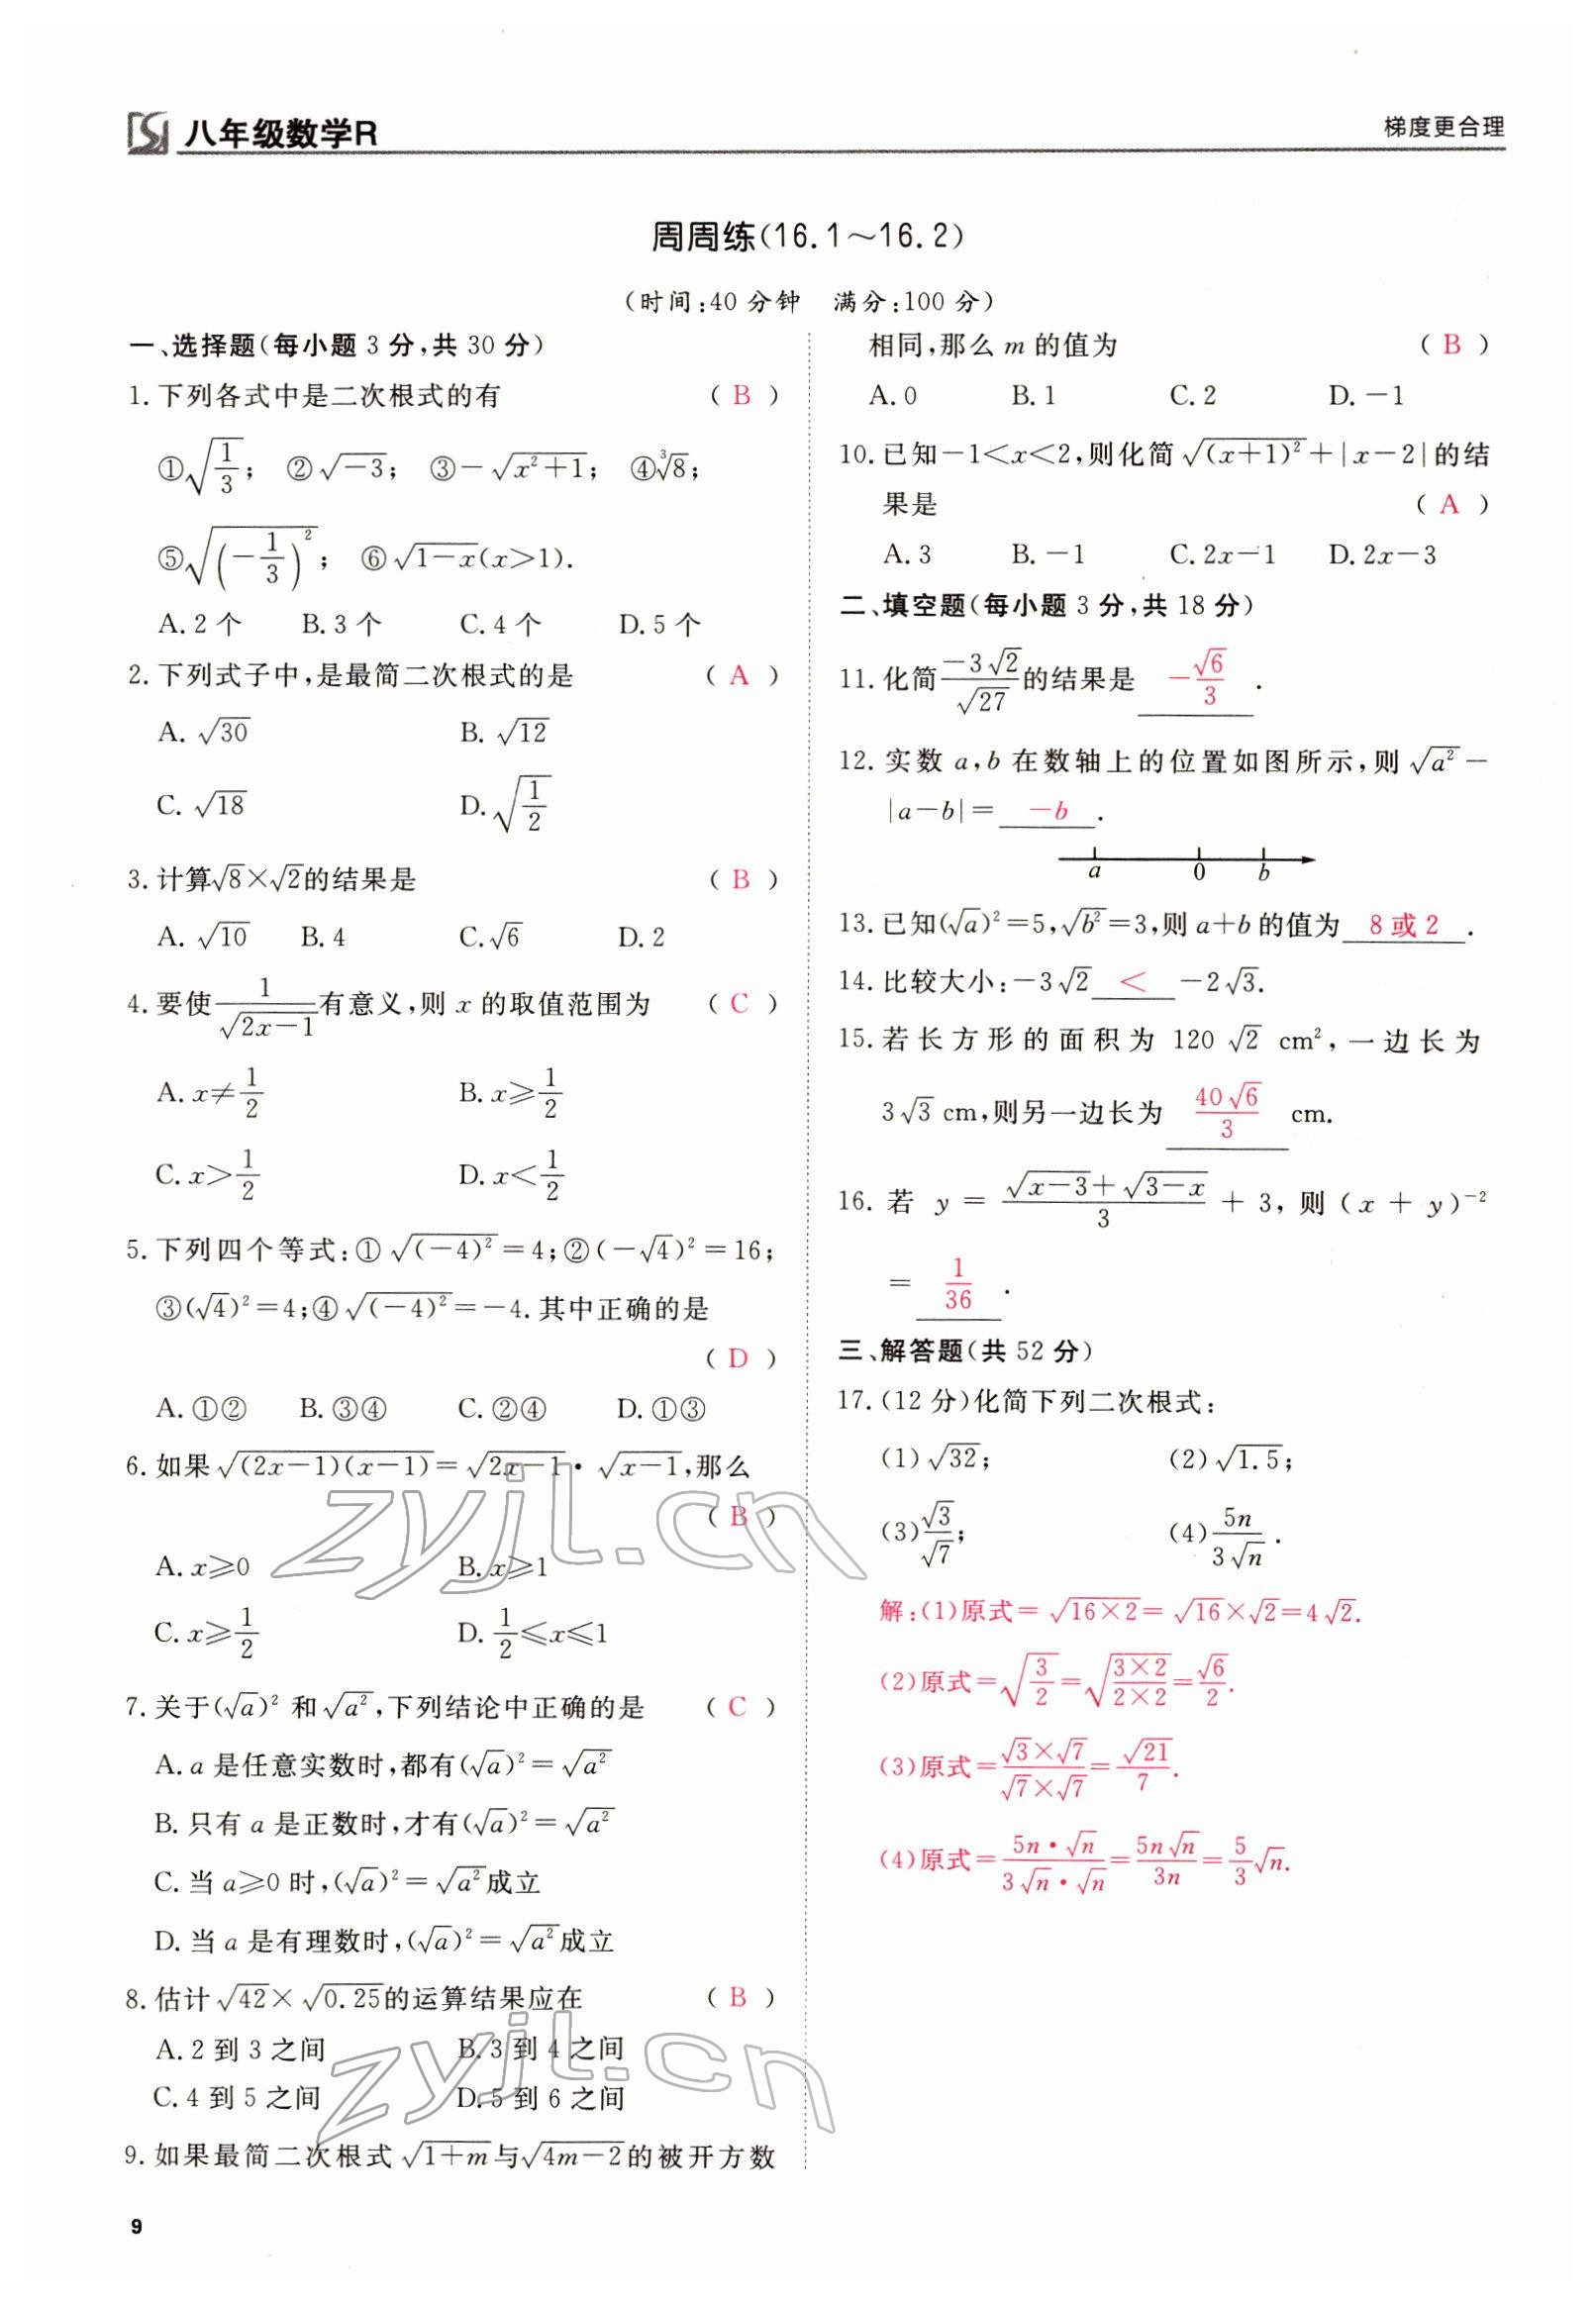 八年级数学R
梯度更合理
周周练(16.1～16.2)
(时间:40分钟 满分:100分)
一、选择题(每小题3分,共30分)
1.下列各式中是二次根式的有 ( B )
①√(1/3); ②√(-3); ③-√(x²+1); ④³√8;
⑤√((-1/3)²); ⑥√(1-x)(x>1).
A.2个 B.3个 C.4个 D.5个
2.下列式子中,是最简二次根式的是 ( A )
A.√30 B.√12
C.√18 D.√(1/2)
3.计算√8×√2的结果是 ( B )
A.√10 B.4 C.√6 D.2
4.要使1/√(2x-1)有意义,则x的取值范围为 ( C )
A.x≠1/2 B.x≥1/2
C.x>1/2 D.x<1/2
5.下列四个等式:①√((-4)²)=4;②(-√4)²=16;
③(√4)²=4;④√((-4)²)=-4.其中正确的是
( D )
A.①② B.③④ C.②④ D.①③
6.如果√((2x-1)(x-1))=√(2x-1)·√(x-1),那么
( B )
A.x≥0 B.x≥1
C.x≥1/2 D.1/2≤x≤1
7.关于(√a)²和√(a²),下列结论中正确的是 ( C )
A.a是任意实数时,都有(√a)²=√(a²)
B.只有a是正数时,才有(√a)²=√(a²)
C.当a≥0时,(√a)²=√(a²)成立
D.当a是有理数时,(√a)²=√(a²)成立
8.估计√42×√0.25的运算结果应在 ( B )
A.2到3之间 B.3到4之间
C.4到5之间 D.5到6之间
9.如果最简二次根式√(1+m)与√(4m-2)的被开方数
相同,那么m的值为 ( B )
A.0 B.1 C.2 D.-1
10.已知-1<x<2,则化简√((x+1)²)+|x-2|的结
果是 ( A )
A.3 B.-1 C.2x-1 D.2x-3
二、填空题(每小题3分,共18分)
11.化简(-3√2)/√27的结果是 -√6/3 .
12.实数a,b在数轴上的位置如图所示,则√(a²)-
|a-b|= -b .
a 0 b
13.已知(√a)²=5,√(b²)=3,则a+b的值为 8或2 .
14.比较大小:-3√2 < -2√3.
15.若长方形的面积为120√2 cm²,一边长为
3√3 cm,则另一边长为 40√6/3 cm.
16.若y=(√(x-3)+√(3-x))/3+3,则(x+y)⁻²
= 1/36 .
三、解答题(共52分)
17.(12分)化简下列二次根式:
(1)√32; (2)√1.5;
(3)√3/√7; (4)5n/(3√n).
解:(1)原式=√(16×2)=√16×√2=4√2.
(2)原式=√(3/2)=√((3×2)/(2×2))=√6/2.
(3)原式=(√3×√7)/(√7×√7)=√21/7.
(4)原式=(5n·√n)/(3√n·√n)=5n√n/3n=5/3√n.
zyjl.cn
zyjl.cn
9